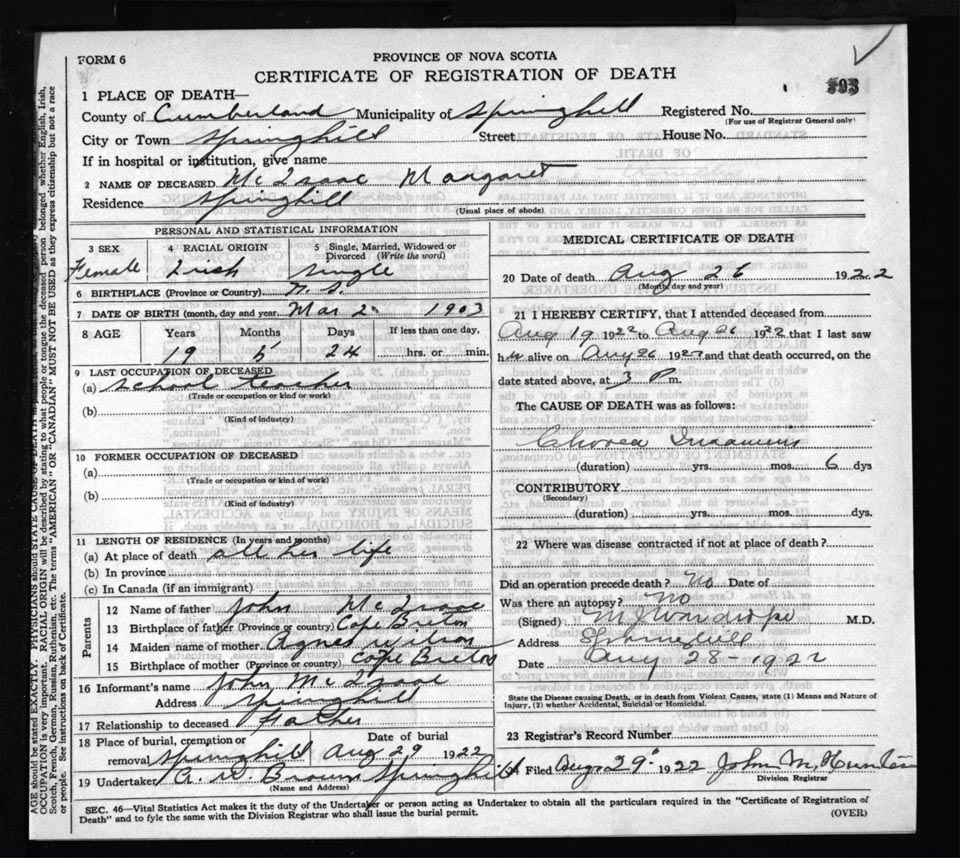 FORM 6
PROVINCE OF NOVA SCOTIA
CERTIFICATE OF REGISTRATION OF DEATH
1 PLACE OF DEATH—
County of Cumberland Municipality of Springhill Registered No.
(For use of Registrar General only)
City or Town Springhill Street House No.
If in hospital or institution, give name
2 NAME OF DECEASED McIsaac Margaret
Residence Springhill
(Usual place of abode)
PERSONAL AND STATISTICAL INFORMATION
3 SEX 4 RACIAL ORIGIN 5 Single, Married, Widowed or Divorced (Write the word)
Female Irish Single
6 BIRTHPLACE (Province or Country) N. S.
7 DATE OF BIRTH (month, day and year) Mar 2 1903
8 AGE Years Months Days If less than one day,
19 5 24 hrs. or min.
9 LAST OCCUPATION OF DECEASED
(a) School teacher
(Trade or occupation or kind or work)
(b)
(Kind of industry)
10 FORMER OCCUPATION OF DECEASED
(a)
(Trade or occupation or kind of work)
(b)
(Kind of industry)
11 LENGTH OF RESIDENCE (In years and months)
(a) At place of death all her life
(b) In province
(c) In Canada (if an immigrant)
Parents
12 Name of father John McIsaac
13 Birthplace of father (Province or country) Cape Breton
14 Maiden name of mother Agnes Wilson
15 Birthplace of mother (Province or country) Cape Breton
16 Informant's name John McIsaac
Address Springhill
17 Relationship to deceased Father
18 Place of burial, cremation or removal Springhill Date of burial Aug 29 1922
19 Undertaker A. W. Brown Springhill
(Name and Address)
MEDICAL CERTIFICATE OF DEATH
20 Date of death Aug 26 1922
(Month, day and year)
21 I HEREBY CERTIFY, that I attended deceased from
Aug 19 1922 to Aug 26 1922 that I last saw
her alive on Aug 26 1922 and that death occurred, on the
date stated above, at 3 P m.
The CAUSE OF DEATH was as follows:
Chorea
(duration) yrs. mos. 6 dys
CONTRIBUTORY
(Secondary)
(duration) yrs. mos. dys.
22 Where was disease contracted if not at place of death?
Did an operation precede death? No Date of
Was there an autopsy? No
(Signed) M.D.
Address Springhill
Date Aug 28 - 1922
State the Disease causing Death, or in death from Violent Causes, state (1) Means and Nature of
Injury, (2) whether Accidental, Suicidal or Homicidal.
23 Registrar's Record Number
24 Filed Aug 29 1922 John M.
Division Registrar
SEC. 46—Vital Statistics Act makes it the duty of the Undertaker or person acting as Undertaker to obtain all the particulars required in the "Certificate of Registration of
Death" and to fyle the same with the Division Registrar who shall issue the burial permit. (OVER)